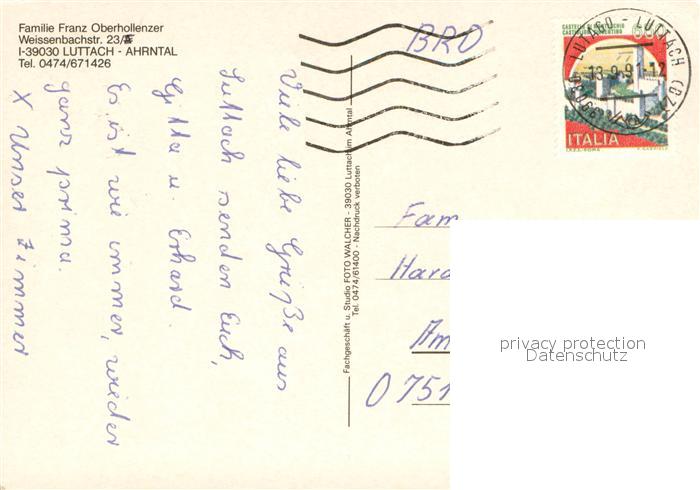 Familie Franz Oberhollenzer
Weissenbachstr. 23/A
I-39030 LUTTACH - AHRNTAL
Tel. 0474/671426
Viele liebe Grüße aus
Luttach senden Euch,
Gitta u. Erhard.
Es ist wie immer, wieder
ganz prima.
X Unser Zimmer
Fachgeschäft u. Studio FOTO WALCHER - 39030 Luttach im Ahrntal
Tel. 0474/61400 - Nachdruck verboten
BRD
LUTAGO - LUTTACH (BZ)
13-9.91-12
39030
ITALIA
I.P.Z.S. ROMA
Fam
Hara
Am
O 751
privacy protection
Datenschutz